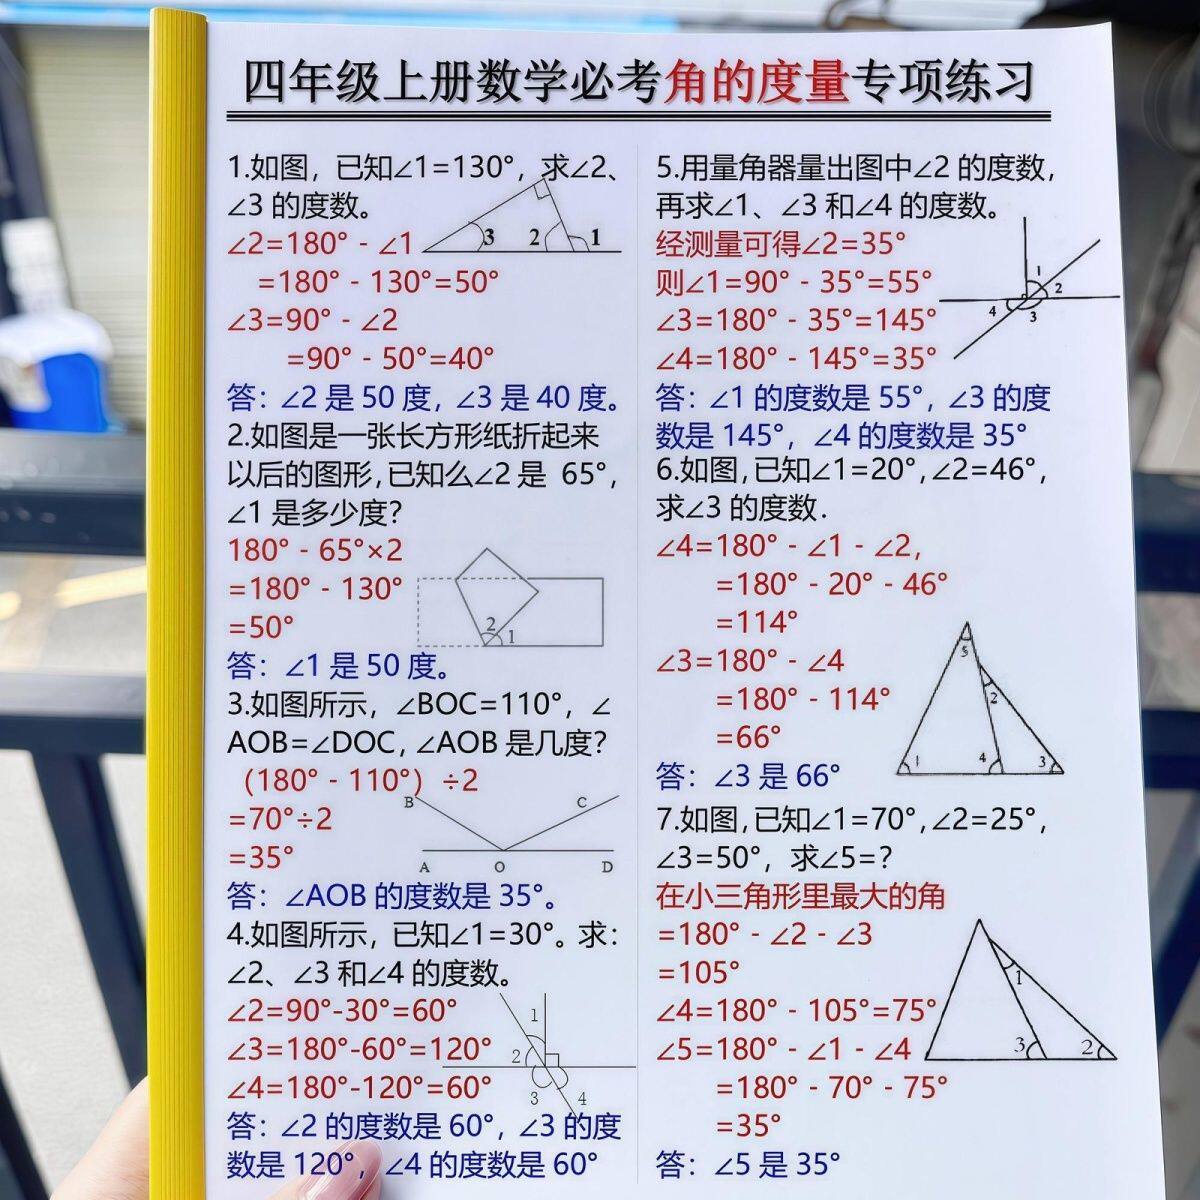 四年级上册数学必考角的度量专项练习
1.如图，已知∠1=130°，求∠2、
∠3 的度数。
∠2=180° - ∠1
=180° - 130°=50°
∠3=90° - ∠2
=90° - 50°=40°
答：∠2 是 50 度，∠3 是 40 度。
3 2 1
2.如图是一张长方形纸折起来
以后的图形,已知么∠2 是 65°,
∠1 是多少度?
180° - 65°×2
=180° - 130°
=50°
答：∠1 是 50 度。
2 1
3.如图所示，∠BOC=110°，∠
AOB=∠DOC, ∠AOB 是几度?
（180° - 110°）÷2
=70°÷2
=35°
答：∠AOB 的度数是 35°。
B C
A O D
4.如图所示，已知∠1=30°。求：
∠2、∠3 和∠4 的度数。
∠2=90°-30°=60°
∠3=180°-60°=120°
∠4=180°-120°=60°
答：∠2 的度数是 60°，∠3 的度
数是 120°，∠4 的度数是 60°
1
2
3 4
5.用量角器量出图中∠2 的度数，
再求∠1、∠3 和∠4 的度数。
经测量可得∠2=35°
则∠1=90° - 35°=55°
∠3=180° - 35°=145°
∠4=180° - 145°=35°
答：∠1 的度数是 55°，∠3 的度
数是 145°，∠4 的度数是 35°
1
2
4 3
6.如图,已知∠1=20°,∠2=46°,
求∠3 的度数.
∠4=180° - ∠1 - ∠2,
=180° - 20° - 46°
=114°
∠3=180° - ∠4
=180° - 114°
=66°
答：∠3 是 66°
5
2
1 4 3
7.如图,已知∠1=70°,∠2=25°,
∠3=50°，求∠5=?
在小三角形里最大的角
=180° - ∠2 - ∠3
=105°
∠4=180° - 105°=75°
∠5=180° - ∠1 - ∠4
=180° - 70° - 75°
=35°
答：∠5 是 35°
1
3 2